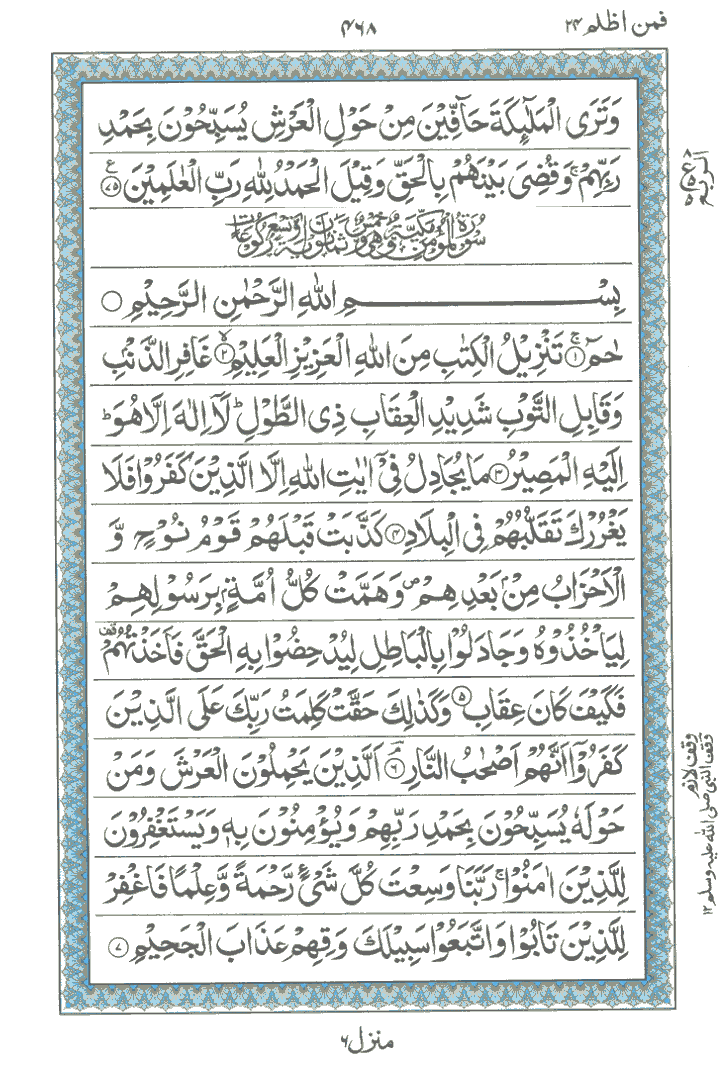 فمن اظلم ۲۴
۴۶۸
وَتَرَى الْمَلٰٓئِكَةَ حَآفِّيْنَ مِنْ حَوْلِ الْعَرْشِ يُسَبِّحُوْنَ بِحَمْدِ
رَبِّهِمْ ۚ وَقُضِيَ بَيْنَهُمْ بِالْحَقِّ وَقِيْلَ الْحَمْدُ لِلّٰهِ رَبِّ الْعٰلَمِيْنَ ۷۵
بِسْمِ اللّٰهِ الرَّحْمٰنِ الرَّحِيْمِ
حٰمٓ ۚ ۱ تَنْزِيْلُ الْكِتٰبِ مِنَ اللّٰهِ الْعَزِيْزِ الْعَلِيْمِ ۙ ۲ غَافِرِ الذَّنْۢبِ
وَقَابِلِ التَّوْبِ شَدِيْدِ الْعِقَابِ ذِى الطَّوْلِ ؕ لَاۤ اِلٰهَ اِلَّا هُوَ ؕ
اِلَيْهِ الْمَصِيْرُ ۳ مَا يُجَادِلُ فِيْۤ اٰيٰتِ اللّٰهِ اِلَّا الَّذِيْنَ كَفَرُوْا فَلَا
يَغْرُرْكَ تَقَلُّبُهُمْ فِى الْبِلَادِ ۴ كَذَّبَتْ قَبْلَهُمْ قَوْمُ نُوْحٍ وَّ
الْاَحْزَابُ مِنْۢ بَعْدِهِمْ ۪ وَهَمَّتْ كُلُّ اُمَّةٍۭ بِرَسُوْلِهِمْ
لِيَاْخُذُوْهُ وَجَادَلُوْا بِالْبَاطِلِ لِيُدْحِضُوْا بِهِ الْحَقَّ فَاَخَذْتُهُمْ
فَكَيْفَ كَانَ عِقَابِ ۵ وَكَذٰلِكَ حَقَّتْ كَلِمَتُ رَبِّكَ عَلَى الَّذِيْنَ
كَفَرُوْۤا اَنَّهُمْ اَصْحٰبُ النَّارِ ۶ اَلَّذِيْنَ يَحْمِلُوْنَ الْعَرْشَ وَمَنْ
حَوْلَهٗ يُسَبِّحُوْنَ بِحَمْدِ رَبِّهِمْ وَيُؤْمِنُوْنَ بِهٖ وَيَسْتَغْفِرُوْنَ
لِلَّذِيْنَ اٰمَنُوْا ۚ رَبَّنَا وَسِعْتَ كُلَّ شَيْءٍ رَّحْمَةً وَّعِلْمًا فَاغْفِرْ
لِلَّذِيْنَ تَابُوْا وَاتَّبَعُوْا سَبِيْلَكَ وَقِهِمْ عَذَابَ الْجَحِيْمِ ۷
وقف لازم
وقف النبی صلی اللہ علیہ وسلم ۱۲
منزل ۶